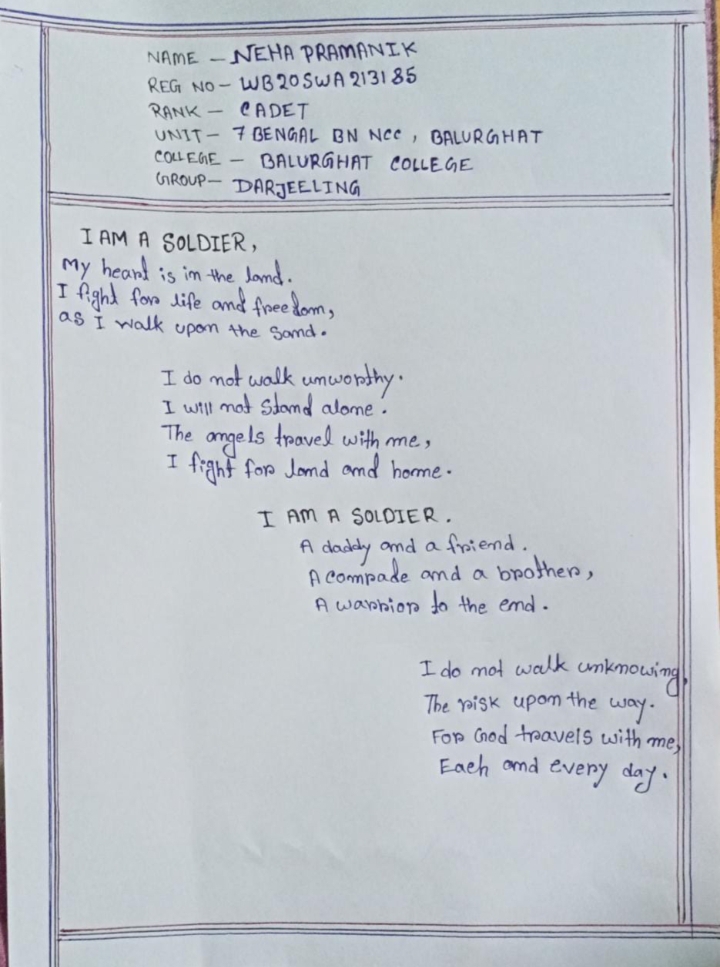 NAME - NEHA PRAMANIK
REG NO - WB20SWA213185
RANK - CADET
UNIT - 7 BENGAL BN NCC, BALURGHAT
COLLEGE - BALURGHAT COLLEGE
GROUP - DARJEELING
I AM A SOLDIER,
My heart is in the land.
I fight for life and freedom,
as I walk upon the sand.
I do not walk unworthy.
I will not stand alone.
The angels travel with me,
I fight for land and home.
I AM A SOLDIER.
A daddy and a friend.
A comrade and a brother,
A warrior to the end.
I do not walk unknowing,
The risk upon the way.
For God travels with me,
Each and every day.